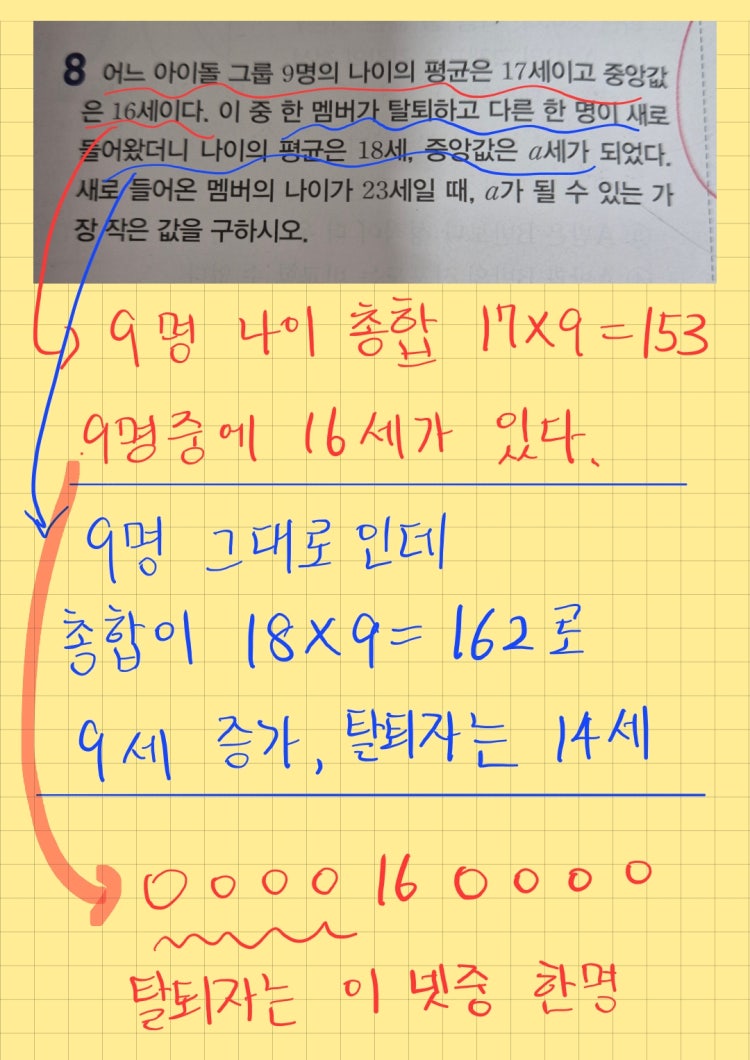 8 어느 아이돌 그룹 9명의 나이의 평균은 17세이고 중앙값
은 16세이다. 이 중 한 멤버가 탈퇴하고 다른 한 명이 새로
들어왔더니 나이의 평균은 18세, 중앙값은 a세가 되었다.
새로 들어온 멤버의 나이가 23세일 때, a가 될 수 있는 가
장 작은 값을 구하시오.
9명 나이 총합 17×9=153
9명중에 16세가 있다.
9명 그대로인데
총합이 18×9=162로
9세 증가, 탈퇴자는 14세
○ ○ ○ ○ 16 ○ ○ ○ ○
탈퇴자는 이 넷중 한명